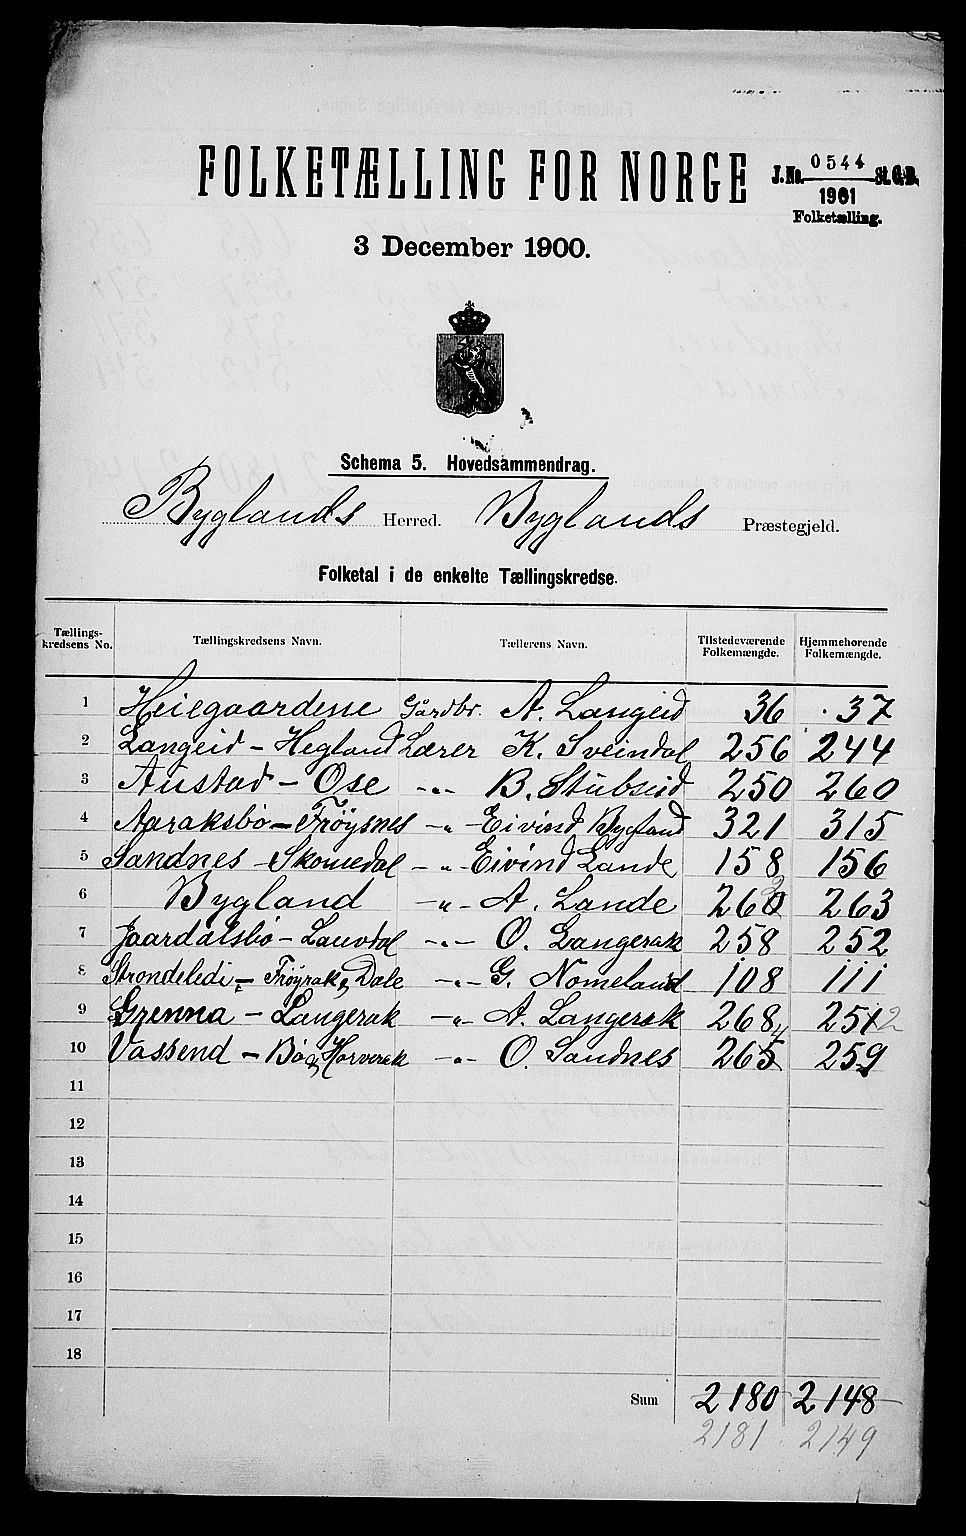 FOLKETÆLLING FOR NORGE
J. No. 0544 St. C. B.
1901
Folketælling.
3 December 1900.
Schema 5. Hovedsammendrag.
Byglands Herred. Byglands Præstegjeld.
Folketal i de enkelte Tællingskredse.
Tællings-kredsens No. Tællingskredsens Navn. Tællerens Navn. Tilstedeværende Folkemængde. Hjemmehørende Folkemængde.
1 Heiegaardene Gårdbr. A. Langeid 36 37
2 Langeid - Hegland Lærer K. Sveindal 256 244
3 Austad - Ose -"- B. Stubseid 250 260
4 Aaraksbø - Frøysnes -"- Eivind Bygland 321 315
5 Sandnes - Skomedal -"- Eivind Lande 158 156
6 Bygland -"- A. Lande 260 263
7 Jaardalsbø - Lauvdal -"- O. Langerak 258 252
8 Strondeledi - Frøyrak & Dale -"- G. Nomeland 108 111
9 Grenna - Langerak -"- A. Langerak 268 251 2
10 Vassend - Bø & Horverak -"- O. Sandnes 265 259
11
12
13
14
15
16
17
18
Sum 2180 2148
2181 2149